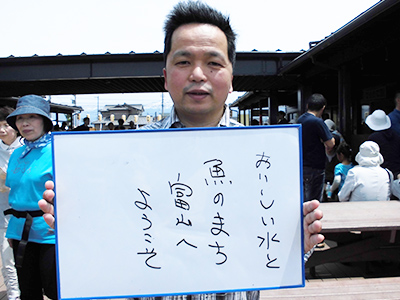 おいしい水と
魚のまち
富山へ
ようこそ